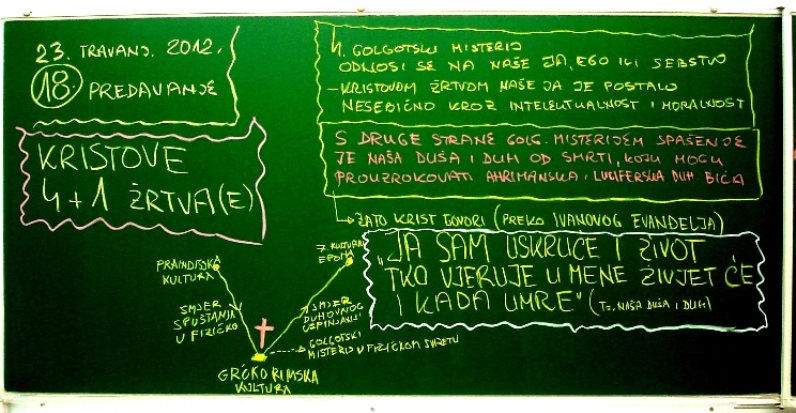 23. TRAVANJ. 2012.
18. PREDAVANJE
KRISTOVE
4+1 ŽRTVA(E)
4. GOLGOTSKI MISTERIJ
ODNOSI SE NA NAŠE JA, EGO ILI SEBSTVO
– KRISTOVOM ŽRTVOM NAŠE JA JE POSTALO
NESEBIČNO KROZ INTELEKTUALNOST I MORALNOST
S DRUGE STRANE GOLG. MISTERIJEM SPAŠENJE
JE NAŠA DUŠA I DUH OD SMRTI, KOJU MOGU
PROUZROKOVATI AHRIMANSKA I LUCIFERSKA DUH. BIĆA
ZATO KRIST GOVORI (PREKO IVANOVOG EVANĐELJA)
"JA SAM USKRSUĆE I ŽIVOT
TKO VJERUJE U MENE ŽIVJET ĆE
I KADA UMRE" (TJ. NAŠA DUŠA I DUH)
PRAINDIJSKA
KULTURA
7. KULTURNA
EPOHA
SMJER
SPUŠTANJA
U FIZIČKO
SMJER
DUHOVNOG
USPINJANJA
GOLGOTSKI
MISTERIJ U FIZIČKOM SVIJETU
GRČKO RIMSKA
KULTURA